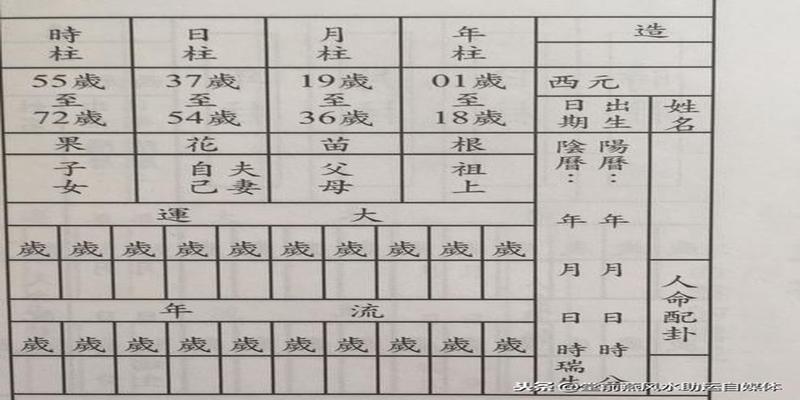 造
年柱 月柱 日柱 時柱
西元
01歲至18歲 19歲至36歲 37歲至54歲 55歲至72歲
姓名
出生日期
根 苗 花 果
祖上 父母 夫妻 自己 子女
陽曆： 年 月 日 時
陰曆： 年 月 日 時瑞生
大運
歲 歲 歲 歲 歲 歲 歲 歲 歲 歲
人命配卦
流年
歲 歲 歲 歲 歲 歲 歲 歲 歲 歲
头条 @堂前燕风水助运自媒体